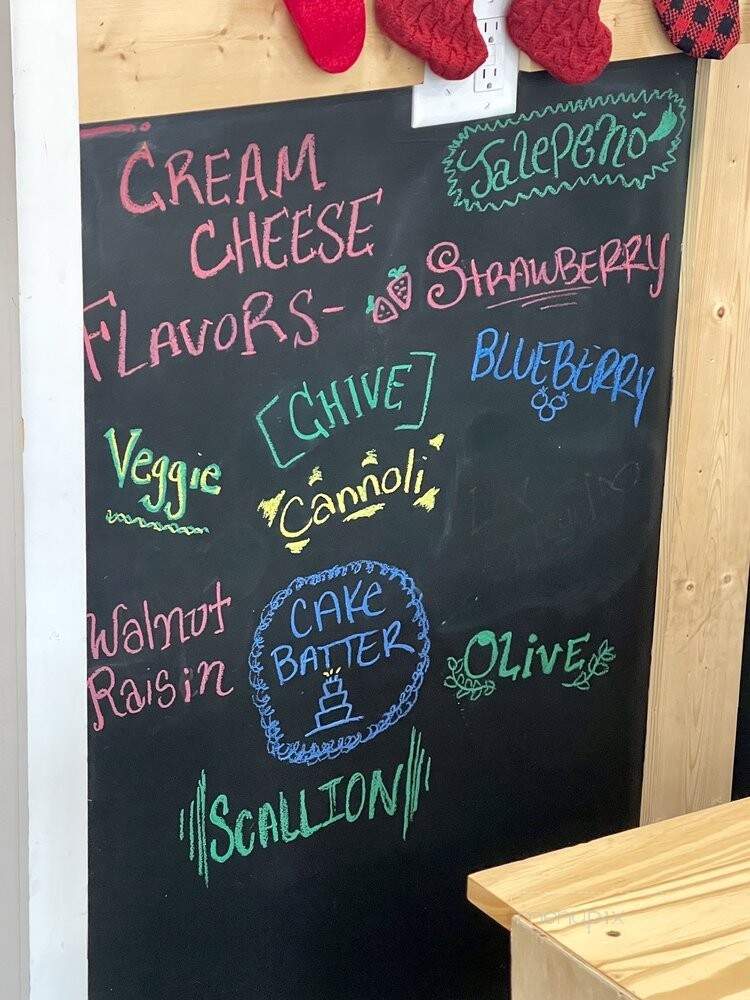 CREAM
CHEESE
FLAVORS-
Jalepeño
STRAWBERRY
BLUEBERRY
[CHIVE]
Veggie
Cannoli
Walnut
Raisin
CAKE
BATTER
OLiVE
SCALLION
menupix